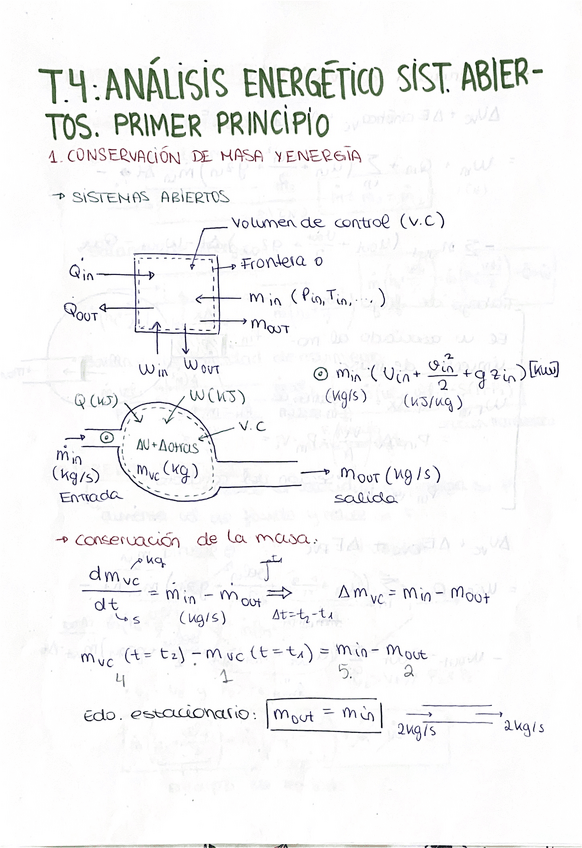 T.4: ANÁLISIS ENERGÉTICO SIST. ABIER-
TOS. PRIMER PRINCIPIO
1. CONSERVACIÓN DE MASA Y ENERGÍA
→ SISTEMAS ABIERTOS
Volumen de control (V.C)
Q̇in
Frontera
ṁin (Pin, Tin, ...)
Q̇OUT
ṁOUT
Ẇin ẆOUT
⊙ ṁin · (Uin + vin²/2 + g zin) [kW]
(kg/s) (kJ/kg)
Q (kJ) W (kJ)
V.C
ΔU + Δotras
mvc (kg)
ṁin
(kg/s)
Entrada
ṁOUT (kg/s)
salida
→ Conservación de la masa:
dmvc/dt = ṁin - ṁOUT ⇒ Δmvc = min - mOUT
kg
s
(kg/s)
Δt = t2 - t1
mvc (t = t2) - mvc (t = t1) = min - mout
4 1 5 2
Edo. estacionario: ṁout = ṁin
2kg/s 2kg/s